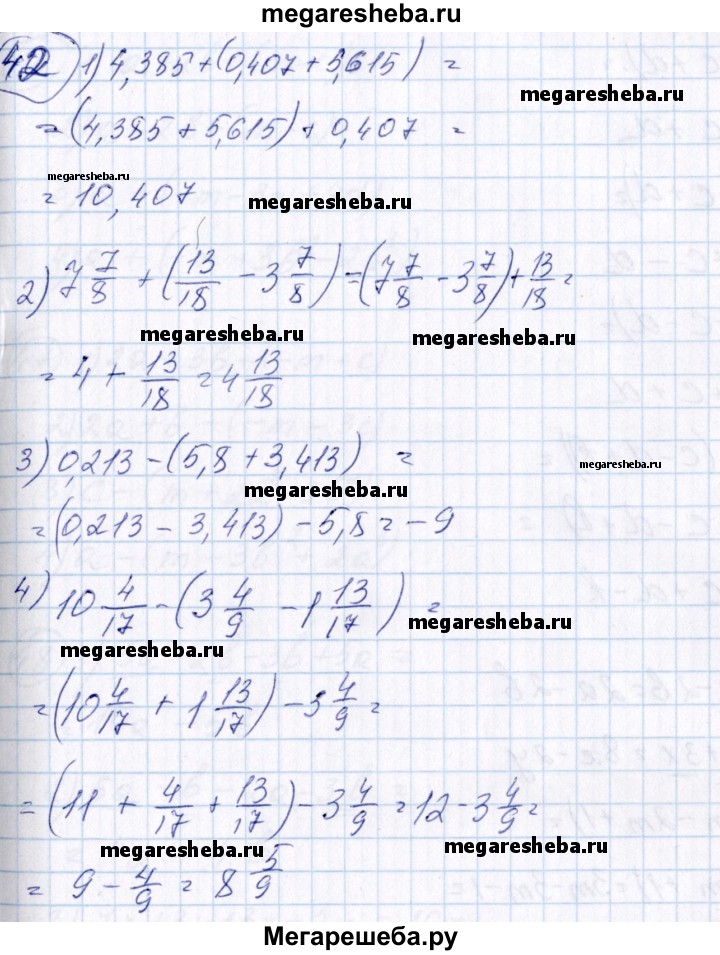 megaresheba.ru
42 1) 4,385+(0,407+5,615) =
megaresheba.ru
= (4,385+5,615)+0,407 =
megaresheba.ru
= 10,407
megaresheba.ru
2) 7 7/8 + (13/18 - 3 7/8) = (7 7/8 - 3 7/8) + 13/18 =
megaresheba.ru
megaresheba.ru
= 4 + 13/18 = 4 13/18
3) 0,213-(5,8+3,413) =
megaresheba.ru
megaresheba.ru
= (0,213 - 3,413) - 5,8 = -9
4) 10 4/17 - (3 4/9 - 1 13/17) =
megaresheba.ru
megaresheba.ru
= (10 4/17 + 1 13/17) - 3 4/9 =
= (11 + 4/17 + 13/17) - 3 4/9 = 12 - 3 4/9 =
megaresheba.ru
megaresheba.ru
= 9 - 4/9 = 8 5/9
megaresheba.ru
Мегарешеба.ру